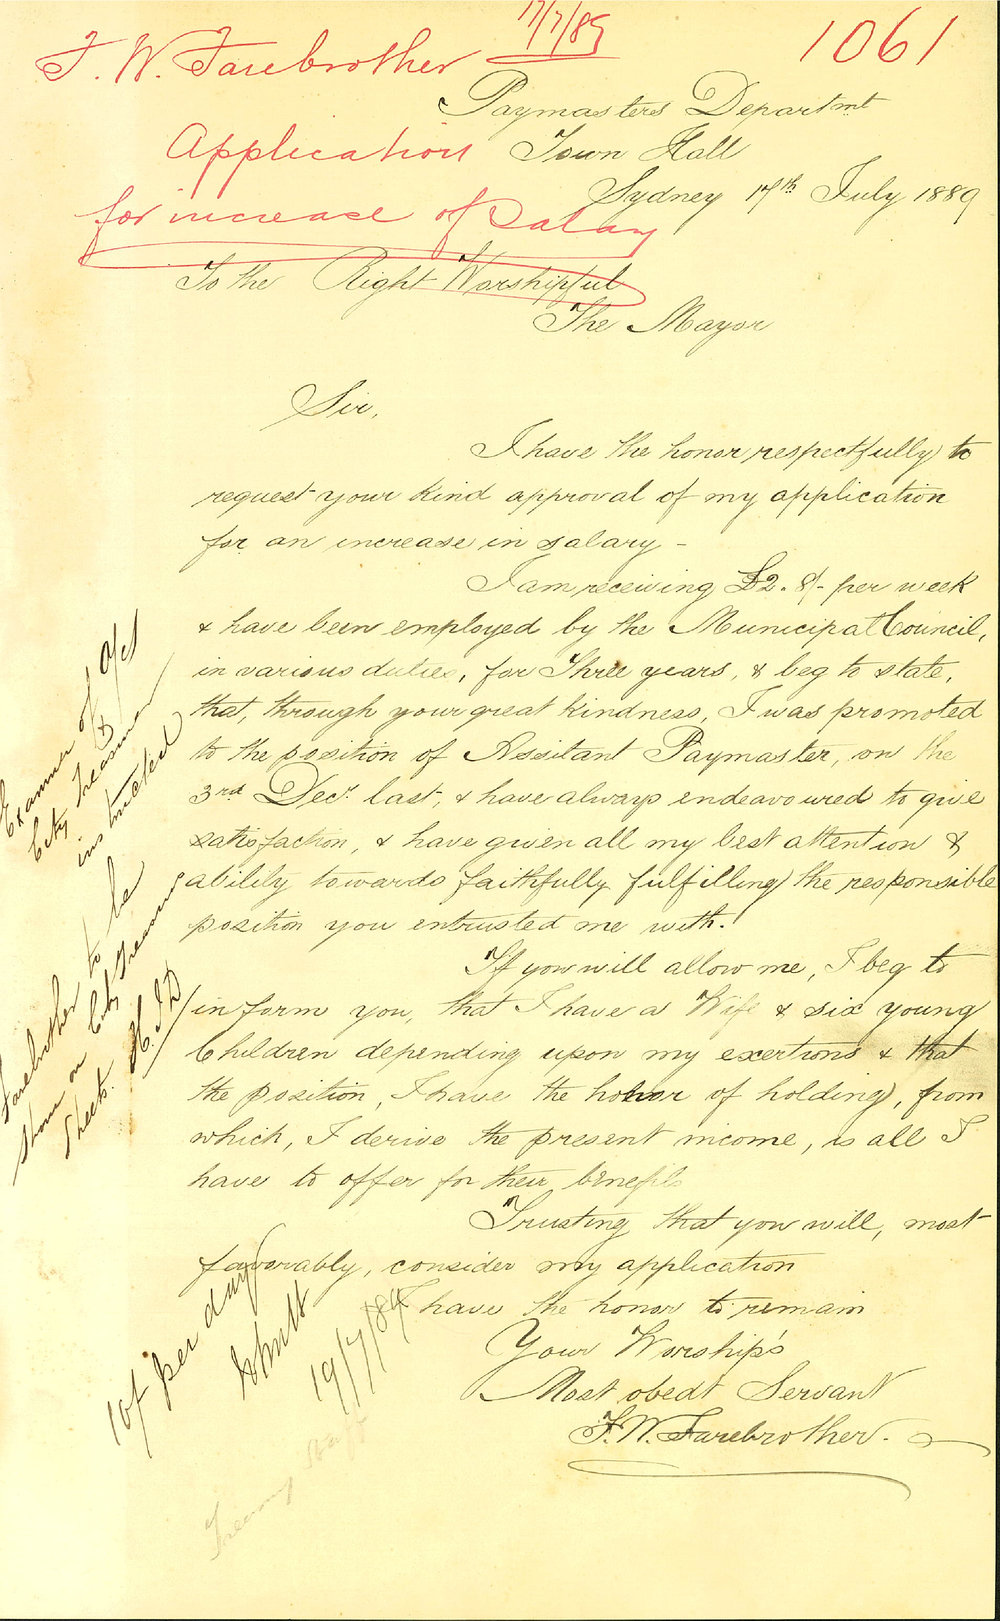 17/7/89
1061
F. W. Farebrother
Paymasters Departmt
Application
Town Hall
Sydney 17th July 1889
for increase of Salary
To the Right Worshipful
The Mayor
Sir,
I have the honor respectfully to
request your kind approval of my application
for an increase in salary -
I am receiving £2. 8/- per week
& have been employed by the Municipal Council,
in various duties, for three years, & beg to state,
that, through your great kindness, I was promoted
to the position of Assitant Paymaster, on the
3rd Decr. last, & have always endeavoured to give
satisfaction, & have given all my best attention &
ability towards faithfully fulfilling the responsible
position you entrusted me with.
If you will allow me, I beg to
inform you, that I have a Wife & six young
Children depending upon my exertions & that
the position, I have the honor of holding, from
which, I derive the present income, is all I
have to offer for their benefit
Trusting that you will, most
favorably, consider my application
I have the honor to remain
Your Worship's
Most obedt Servant
F. W. Farebrother.
Examiner of A/cs
&
City Treasurer
instructed
Farebrother to be
shown on City Treasury
Sheets. H.J.D
10/ per day
19/7/89